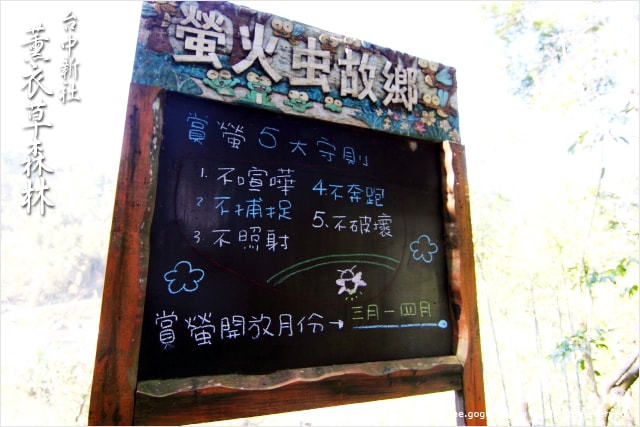 台中新社
薰衣草森林
螢火虫故鄉
賞螢5大守則
1.不喧嘩
2不捕捉
3.不照射
4不奔跑
5.不破壞
賞螢開放月份→三月一四月